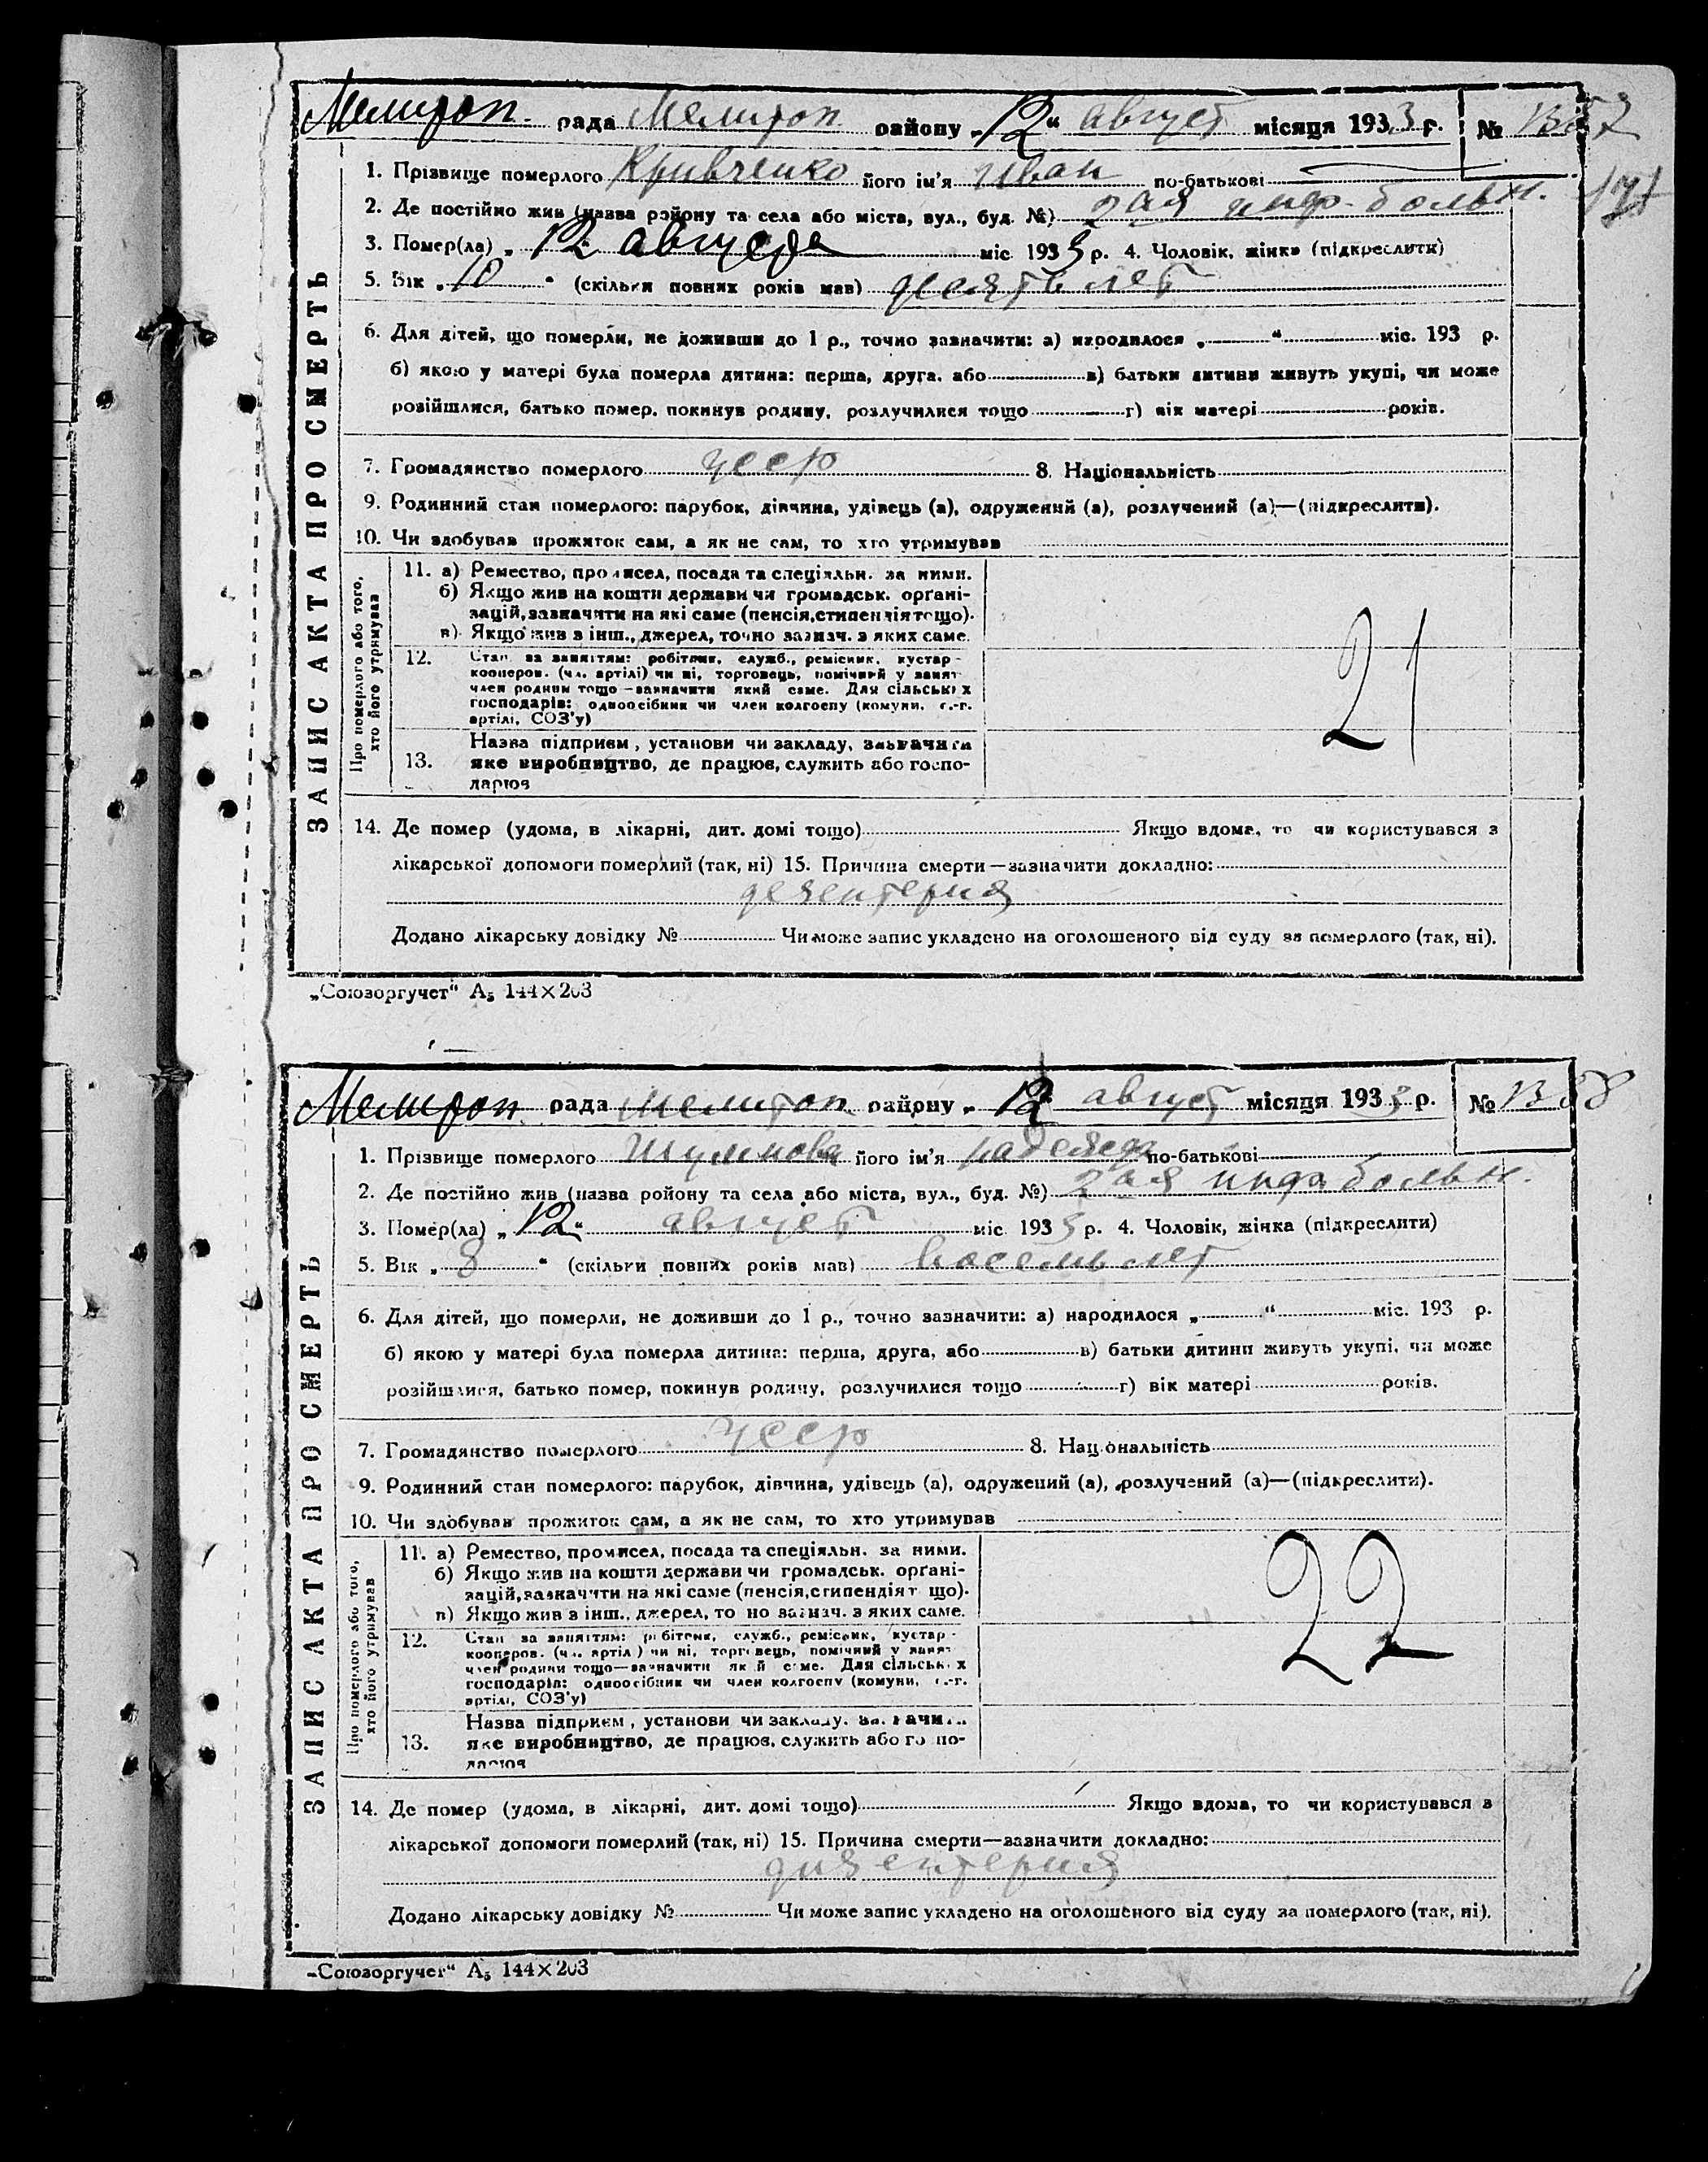 Мелитоп. рада Мелитоп. району „12“ август місяця 1933 р. № 1357
171
1. Прізвище померлого Кривченко його ім'я Иван по-батькові
2. Де постійно жив (назва району та села або міста, вул., буд. №) 2ая инф. больн.
3. Помер(ла) „12 августа міс. 1933 р. 4. Чоловік, жінка (підкреслити)
5. Вік „10“ (скільки повних років мав) десять лет
6. Для дітей, що померли, не доживши до 1 р., точно зазначити: а) народилося „ “ міс. 193 р.
б) якою у матері була померла дитина: перша, друга, або в) батьки дитини живуть укупі, чи може
розійшлися, батько помер, покинув родину, розлучилися тощо г) вік матері років.
7. Громадянство померлого усср 8. Національність
9. Родинний стан померлого: парубок, дівчина, удівець (а), одружений (а), розлучений (а)—(підкреслити).
10. Чи здобував прожиток сам, а як не сам, то хто утримував
ЗАПИС АКТА ПРО СМЕРТЬ
Про померлого або того, хто його утримував
11. а) Ремество, промисел, посада та спеціяльн. за ними.
б) Якщо жив на кошти держави чи громадськ. органі-
зацій, зазначити на які саме (пенсія, стипендія тощо).
в) Якщо жив з інш., джерел, точно зазнач. з яких саме.
21
12. Стан за заняттям: робітник, служб., ремісник, кустар-
кооперов. (чл. артілі) чи ні, торговець, помічний у занят
член родини тощо—зазначити який саме. Для сільських
господарів: одноосібник чи член колгоспу (комуни, с.-г.
артілі, СОЗ'у)
13. Назва підприєм., установи чи закладу, зазначити
яке виробництво, де працює, служить або госпо-
дарює
14. Де помер (удома, в лікарні, дит. домі тощо) Якщо вдома, то чи користувався з
лікарської допомоги померлий (так, ні) 15. Причина смерти—зазначити докладно:
дезентерия
Додано лікарську довідку № Чи може запис укладено на оголошеного від суду за померлого (так, ні).
„Союзоргучет“ А₅ 144×203
Мелитоп. рада Мелитоп. району „12“ август місяця 1933 р. № 1358
1. Прізвище померлого Шумнова його ім'я Надежда по-батькові
2. Де постійно жив (назва ройону та села або міста, вул., буд. №) 2ая инф. больн.
3. Помер(ла) „12“ август міс. 1933 р. 4. Чоловік, жінка (підкреслити)
5. Вік „8“ (скільки повних років мав) восемь лет
6. Для дітей, що померли, не доживши до 1 р., точно зазначити: а) народилося „ “ міс. 193 р.
б) якою у матері була померла дитина: перша, друга, або в) батьки дитини живуть укупі, чи може
розійшлися, батько помер, покинув родину, розлучилися тощо г) вік матері років.
7. Громадянство померлого усср 8. Національність
9. Родинний стан померлого: парубок, дівчина, удівець (а), одружений (а), розлучений (а)—(підкреслити).
10. Чи здобував прожиток сам, а як не сам, то хто утримував
ЗАПИС АКТА ПРО СМЕРТЬ
Про померлого або того, хто його утримував
11. а) Ремество, промисел, посада та спеціяльн. за ними.
б) Якщо жив на кошти держави чи громадськ. органі-
зацій, зазначити на які саме (пенсія, стипендія тощо).
в) Якщо жив з інш., джерел, точно зазнач. з яких саме.
22
12. Стан за заняттям: робітник, служб., ремісник, кустар-
кооперов. (чл. артілі) чи ні, торговець, помічний у занят
член родини тощо—зазначити який саме. Для сільських
господарів: одноосібник чи член колгоспу (комуни, с.-г.
артілі, СОЗ'у)
13. Назва підприєм., установи чи закладу, зазначити
яке виробництво, де працює, служить або госпо-
дарює
14. Де помер (удома, в лікарні, дит. домі тощо) Якщо вдома, то чи користувався з
лікарської допомоги померлий (так, ні) 15. Причина смерти—зазначити докладно:
дизентерия
Додано лікарську довідку № Чи може запис укладено на оголошеного від суду за померлого (так, ні).
„Союзоргучет“ А₅ 144×203